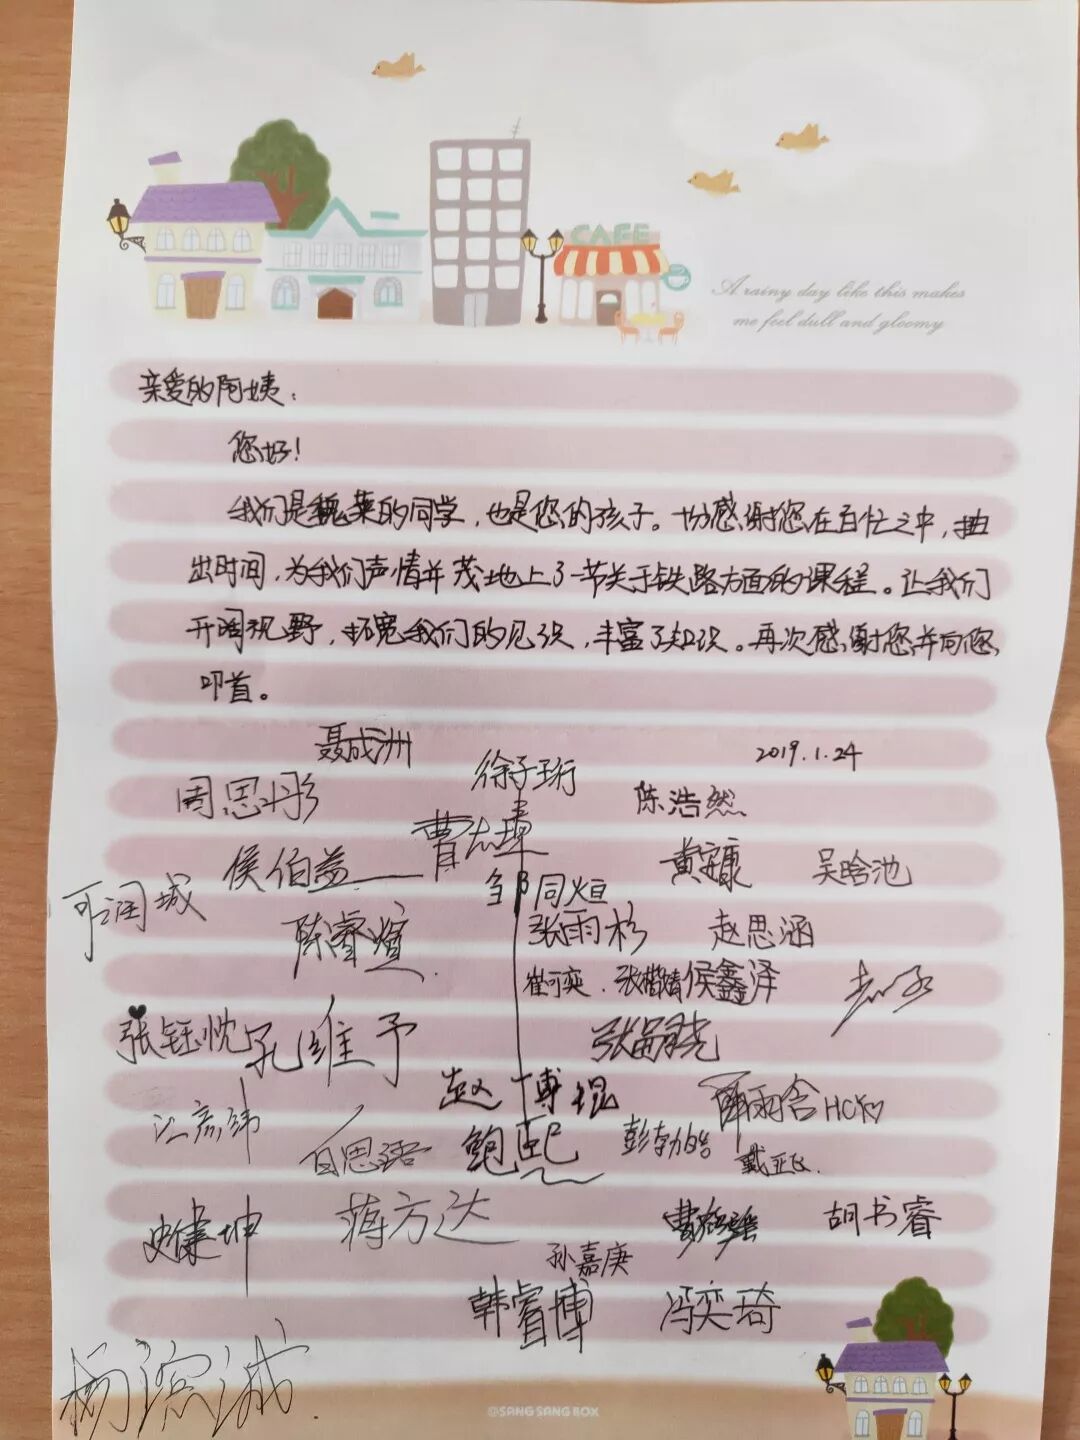 CAFE
A rainy day like this makes
me feel dull and gloomy
亲爱的阿姨：
您好！
我们是魏莱的同学，也是您的孩子。十份感谢您在百忙之中，抽
出时间，为我们声情并茂地上了一节关于铁路方面的课程。让我们
开阔视野，拓宽我们的见识，丰富了知识。再次感谢您，并向您
叩首。
聂成洲
徐子珩
2019.1.24
周思彤
陈浩然
曹志璋
侯伯益
邹同烜
黄康
吴晗池
润城
陈睿煊
张雨杉
赵思涵
崔可奕
侯鑫泽
张钰忱
孔维予
张
赵博锟
雨含 HCY
江彦纬
白思语
鲍熙
彭勃皓
戴亚
史健坤
蒋方达
曹
胡书睿
孙嘉庚
韩睿博
冯奕琦
杨滨诚
@SANG SANG BOX